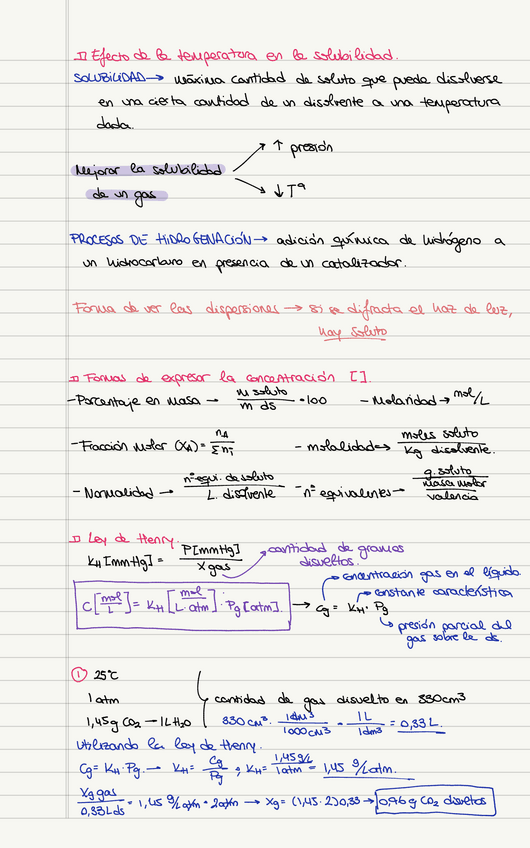 Efecto de la temperatura en la solubilidad.
SOLUBILIDAD → máxima cantidad de soluto que puede disolverse
en una cierta cantidad de un disolvente a una temperatura
dada.
↑ presión
Mejorar la solubilidad
de un gas
↓ Tª
PROCESOS DE HIDROGENACIÓN → adición química de hidrógeno a
un hidrocarburo en presencia de un catalizador.
Forma de ver las dispersiones → si se difracta el haz de luz,
hay soluto
Formas de expresar la concentración [].
- Porcentaje en masa → m soluto / m ds · 100 - Molaridad → mol/L
- Fracción Molar (XA) = nA / Σ ni - molalidad → moles soluto / Kg disolvente.
- Normalidad → nº equi. de soluto / L. disolvente - nº equivalentes → g. soluto / masa molar / valencia
Ley de Henry.
KH [mmHg] = P[mmHg] / X gas → cantidad de gramos
disueltos.
→ concentración gas en el líquido
→ constante característica
C [mol/L] = KH [mol/L·atm] · Pg [atm]. → Cg = KH · Pg
↳ presión parcial del
gas sobre la ds.
① 25°C
1 atm cantidad de gas disuelto en 330cm³
1,45g CO₂ — 1L H₂O 330 cm³ · 1dm³/1000cm³ · 1L/1dm³ = 0,33 L.
Utilizando la ley de Henry.
Cg = KH · Pg → KH = Cg/Pg ; KH = 1,45g/L / 1atm = 1,45 g/Latm.
Xg gas / 0,33L ds = 1,45 g/L atm · 2atm → Xg = (1,45 · 2) 0,33 → 0,96 g CO₂ disueltos